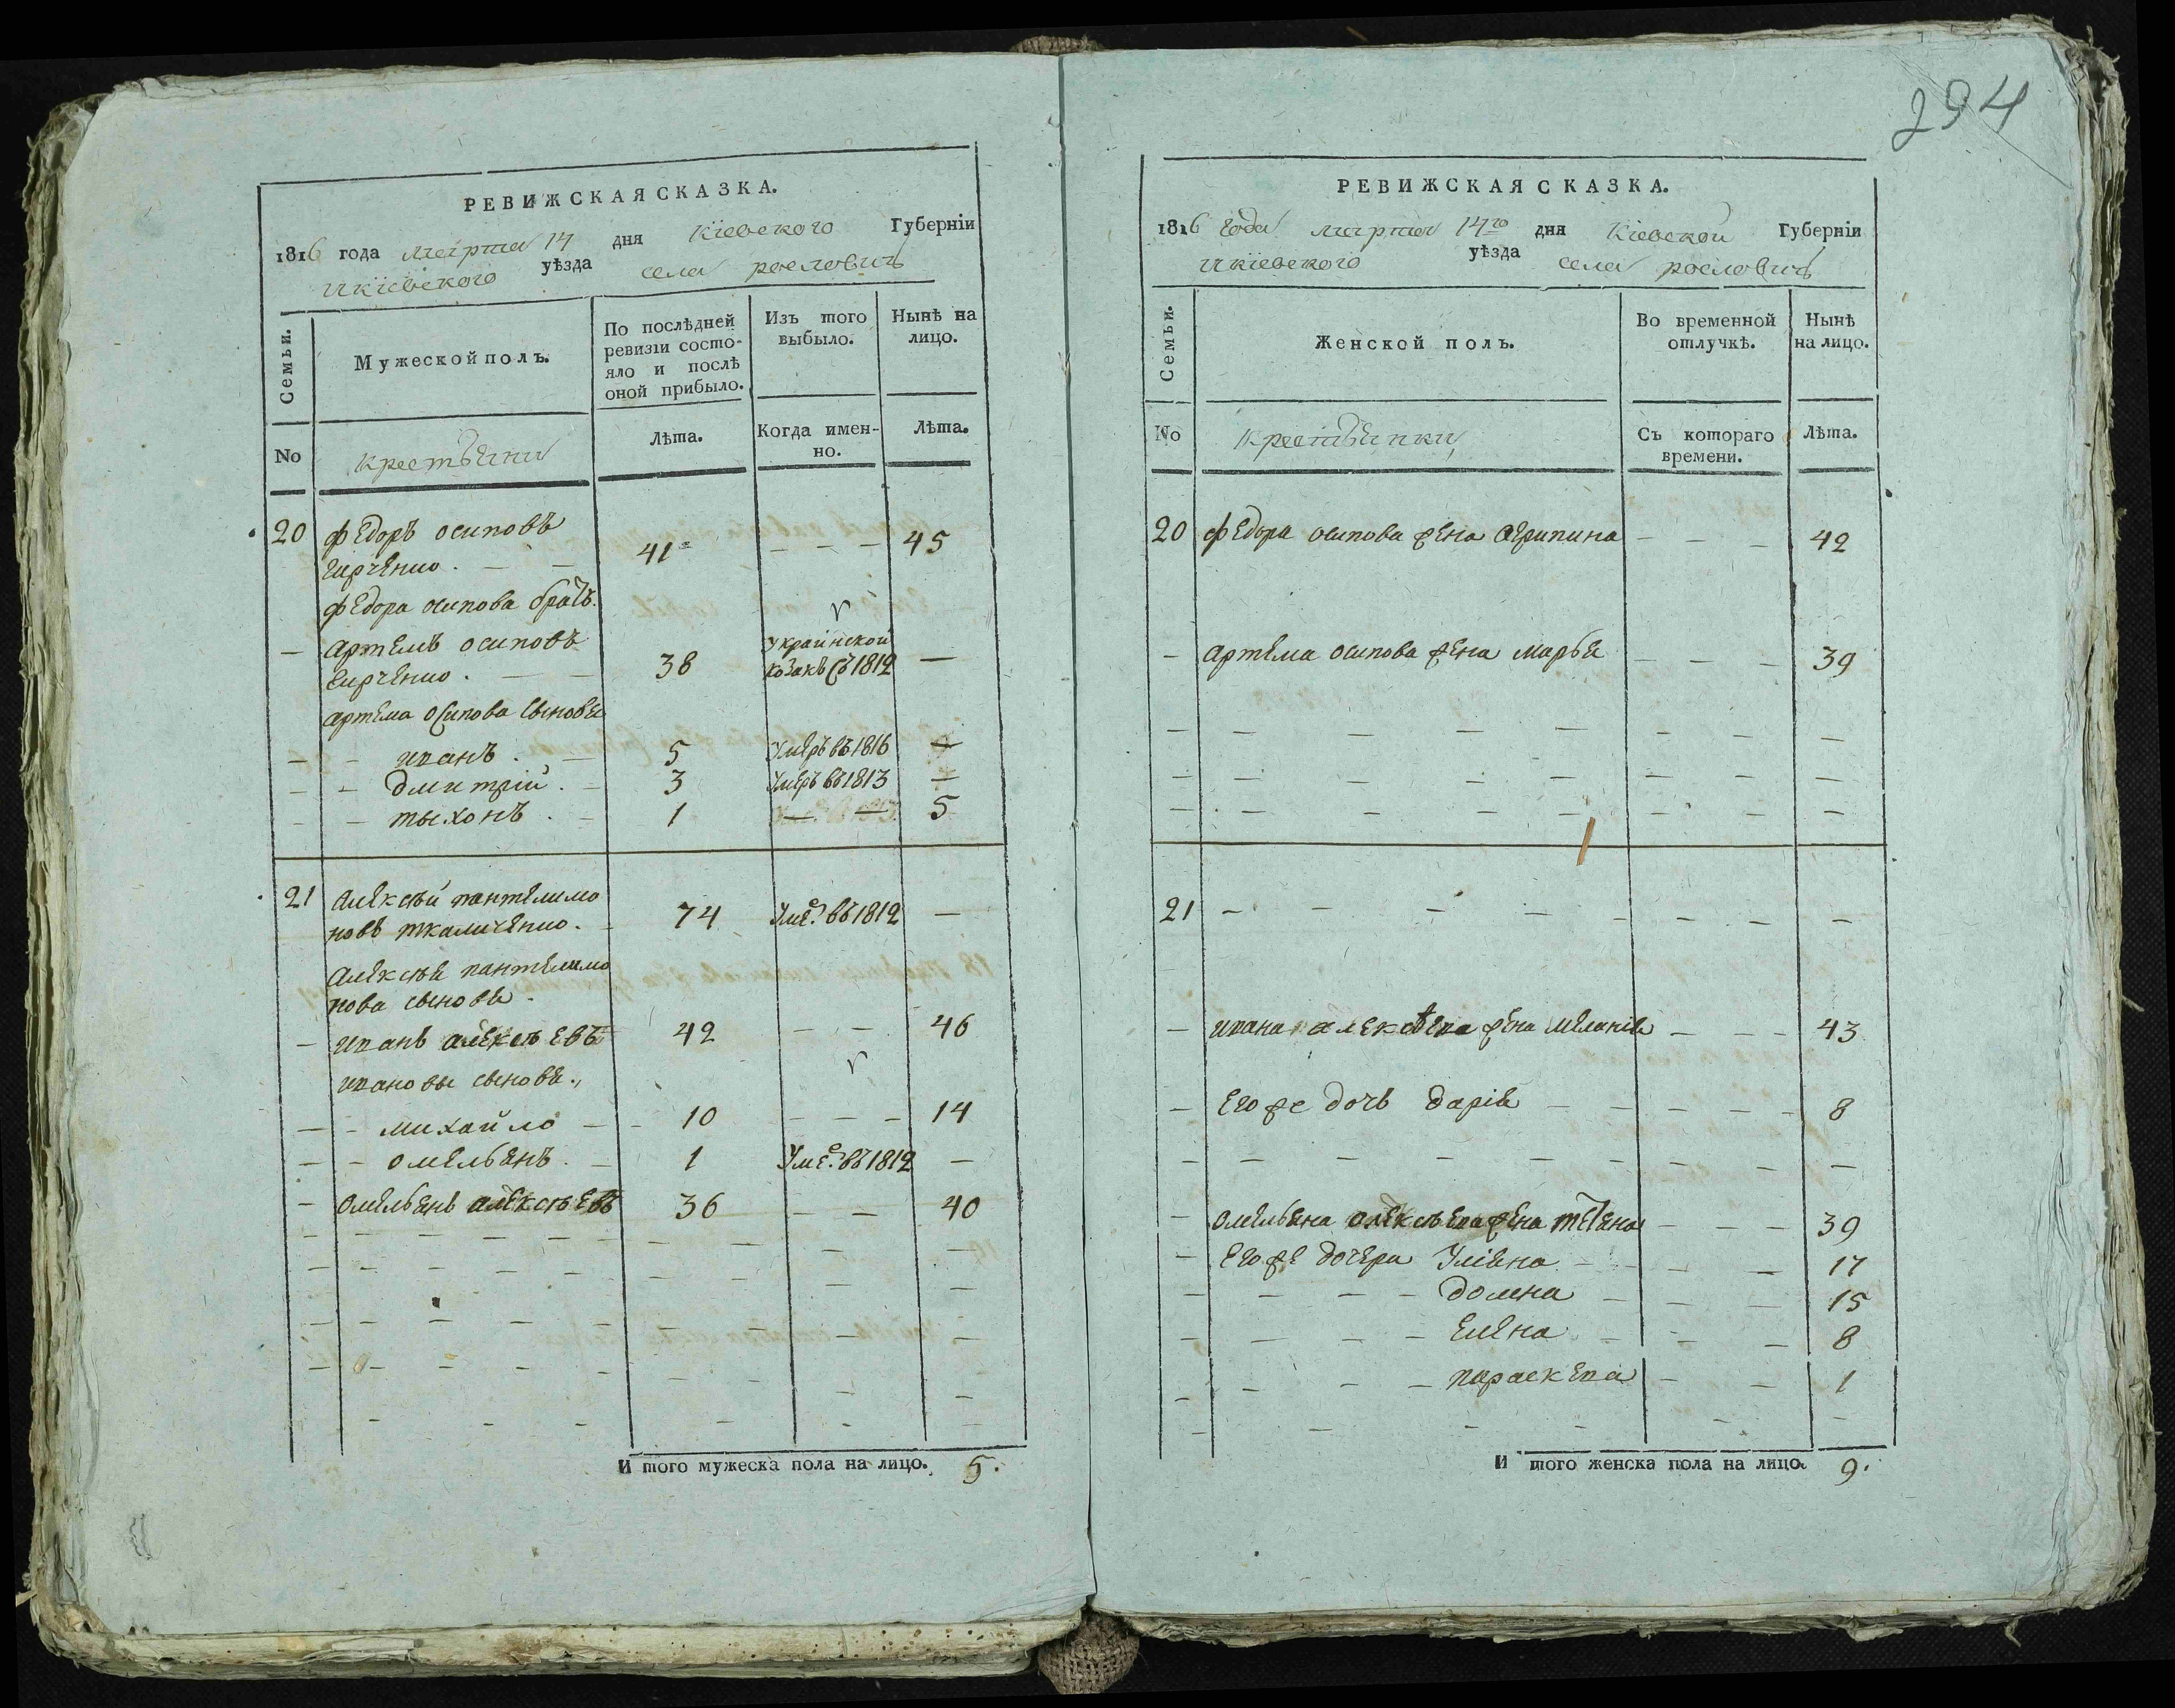 294
РЕВИЖСКАЯ СКАЗКА.
1816 года марта 14 дня Кіевского Губерніи
Икіевского уѣзда села рословичъ
Семьи.
Мужеской полъ.
По послѣдней ревизіи состо-
яло и послѣ
оной прибыло.
Изъ того
выбыло.
Нынѣ на
лицо.
No
крестьяни
Лѣта.
Когда имен-
но.
Лѣта.
20 федоръ осиповъ 41 - - - 45
федора осипова братъ.
- артемъ осиповъ 38 Украинской
козакъ съ 1812 -
артема осипова сыновья
- - иванъ . - 5 Умеръ въ 1816 -
- - дмитрій . - 3 Умеръ въ 1813 -
- - тыхонъ . - 1 - - 5
21 алексѣй пантелимо
новъ ткаличенко. 74 Уме? въ 1812 -
алексѣя пантелимо
нова сыновья.
- иванъ алексѣевъ 42 - - 46
ивановы сыновья.
- - михайло - - 10 - - - 14
- - омельянъ . - 1 Уме? въ 1812 -
- омельянъ алексѣевъ 36 - - 40
И того мужеска пола на лицо. 5.
РЕВИЖСКАЯ СКАЗКА.
1816 года марта 14го дня Кіевской Губерніи
Икіевского уѣзда села рословичъ
Семьи.
Женской полъ.
Во временной
отлучкѣ.
Нынѣ
на лицо.
No
крестьянки
Съ котораго
времени.
Лѣта.
20 федора осипова жена агрипина - - - 42
- артема осипова жена марья - - - 39
21 - - - - - - - -
- ивана алексѣева жена меланія - - - 43
- его же дочь дарія - - - - - 8
- омельяна алексѣева жена тетяна - - - 39
- его же дочери Уліяна - - - 17
- - - - домна - - - 15
- - - - елена - - - 8
- - - - параскева - - 1
И того женска пола на лицо. 9.